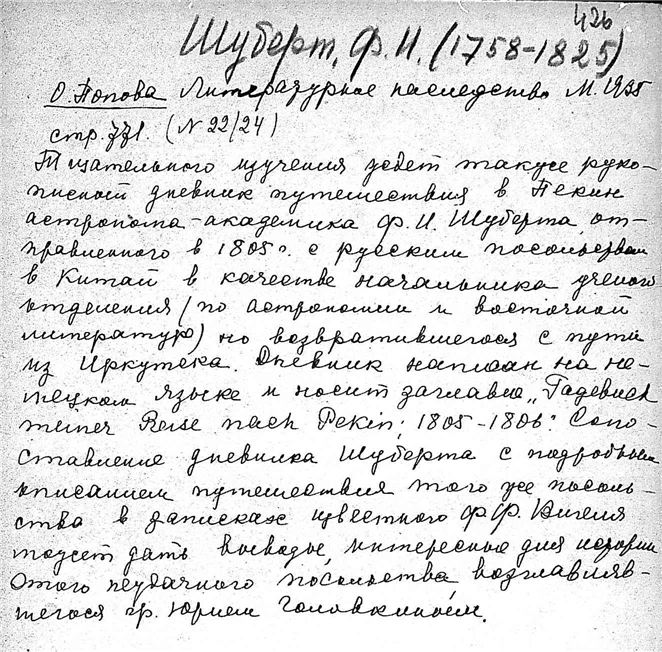 426
Шуберт, Ф. И. (1758-1825)
О. Попова Литературное наследство М. 1935
стр. 771. (N 22/24)
Тщательного изучения ждет также руко-
писный дневник путешествия в Пекин
астронома-академика Ф. И. Шуберта, от-
правленного в 1805 г. с русским посольством
в Китай в качестве начальника ученого
отделения (по астрономии и восточной
литературе) но возвратившегося с пути
из Иркутска. Дневник написан на не-
мецком языке и носит заглавие „Tagebuch
meiner Reise nach Pekin; 1805-1806". Сопо-
ставление дневника Шуберта с подробным
описанием путешествия того же посоль-
ства в записках известного Ф. Ф. Вигеля
может дать выводы, интересные для истории
этого неудачного посольства, возглавляв-
шегося гр. Юрием Головкиным.